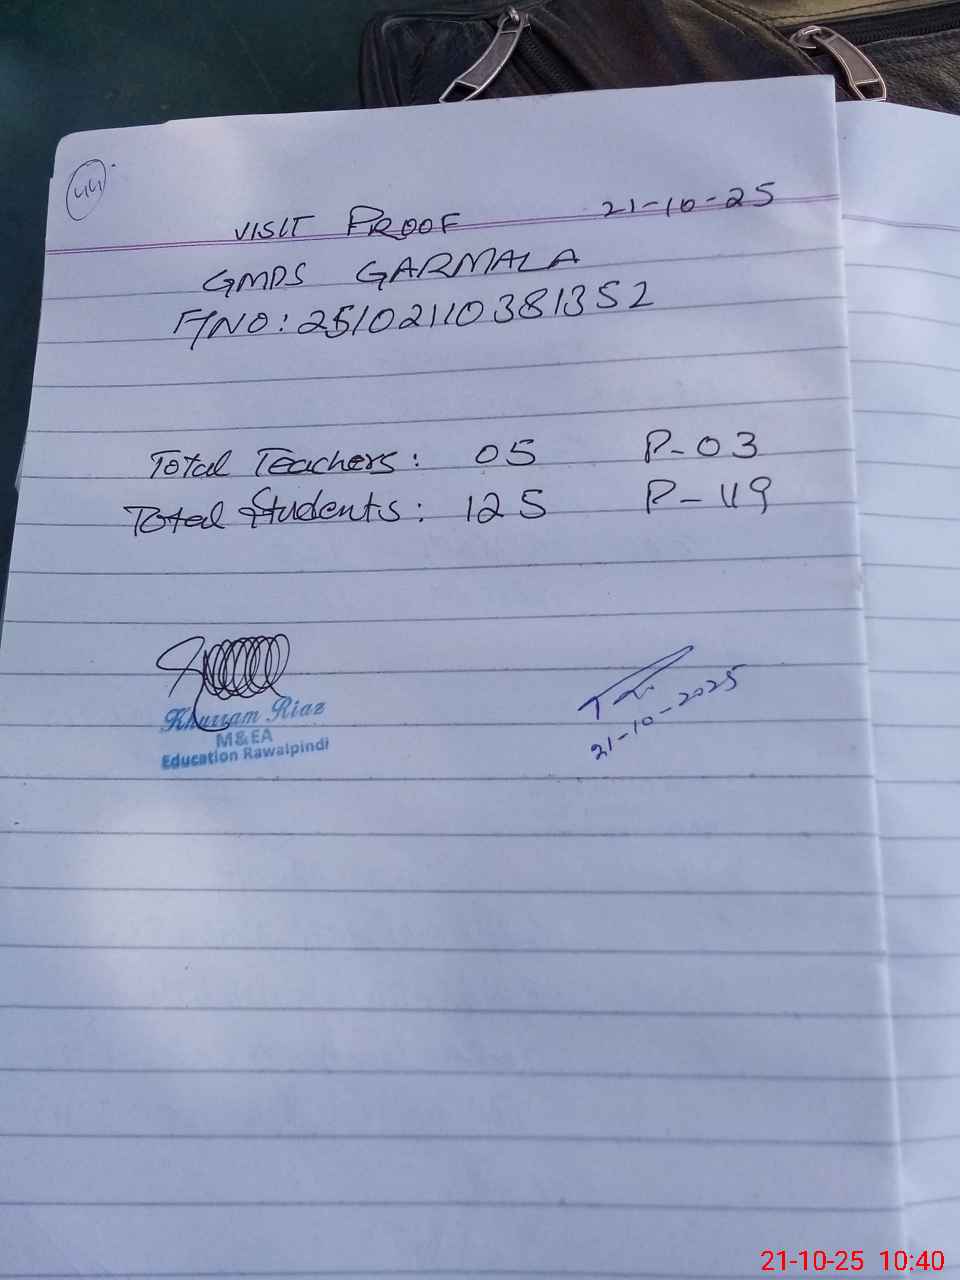 44
VISIT PROOF 21-10-25
GMPS GARMALA
F/NO: 25102110381352
Total Teachers: 05 P-03
Total Students: 125 P-119
Khurram Riaz
M&EA
Education Rawalpindi
21-10-2025
21-10-25 10:40